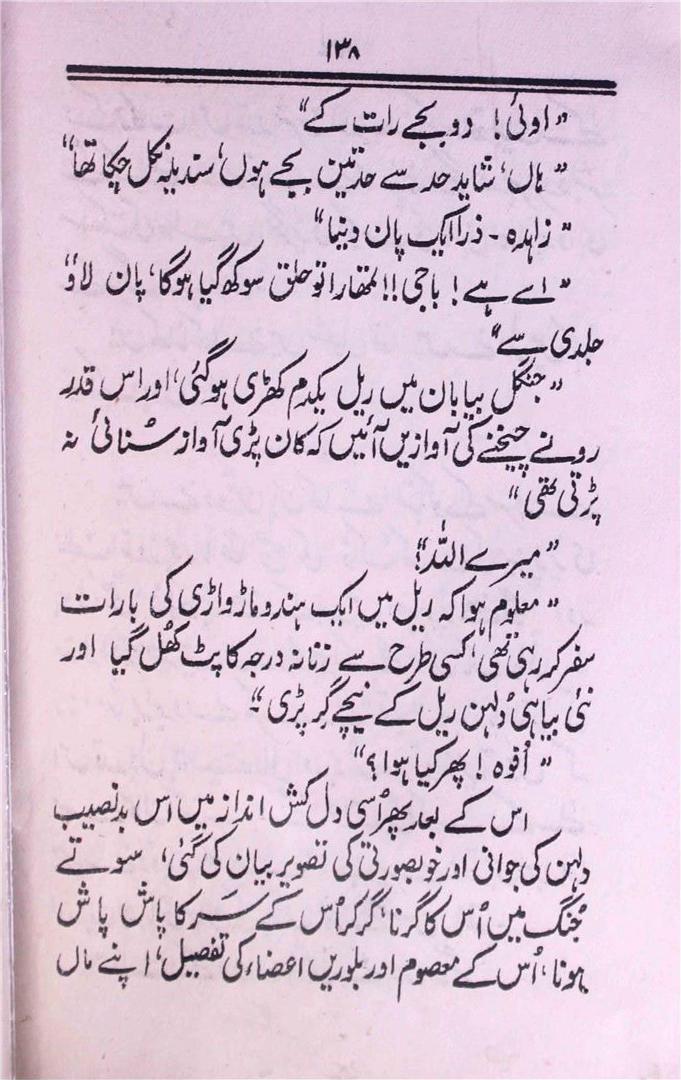 ۱۳۸
" اوئی! دو بجے رات کے"
" ہاں' شاید حد سے حد تین بجے ہوں' سندیلہ نکل چکا تھا"
" زاہدہ - ذرا ایک پان دینا"
" اے ہے! باجی!! تمھارا تو حلق سوکھ گیا ہوگا' پان لاؤ
جلدی سے"
" جنگل بیابان میں ریل یکدم کھڑی ہوگئی' اور اس قدر
رونے چیخنے کی آوازیں آئیں کہ کان پڑی آواز سُنائی نہ
پڑتی تھی"
" میرے اللہ؟"
" معلوم ہوا کہ ریل میں ایک ہندو ماڑواڑی کی بارات
سفر کر رہی تھی' کسی طرح سے زنانہ درجہ کا پٹ کھُل گیا اور
نئی بیاہی دُلہن ریل کے نیچے گر پڑی"۔
" اُفوہ! پھر کیا ہوا؟"
اس کے بعد پھر اُسی دل کش انداز میں اس بدنصیب
دلہن کی جوانی اور خوبصورتی کی تصویر بیان کی گئی' سوتے
جُنگ میں اُس کا گرنا' گر کر اُس کے سَر کا پاش پاش
ہونا' اُس کے معصوم اور بلوریں اعضاء کی تفصیل' اپنے ماں